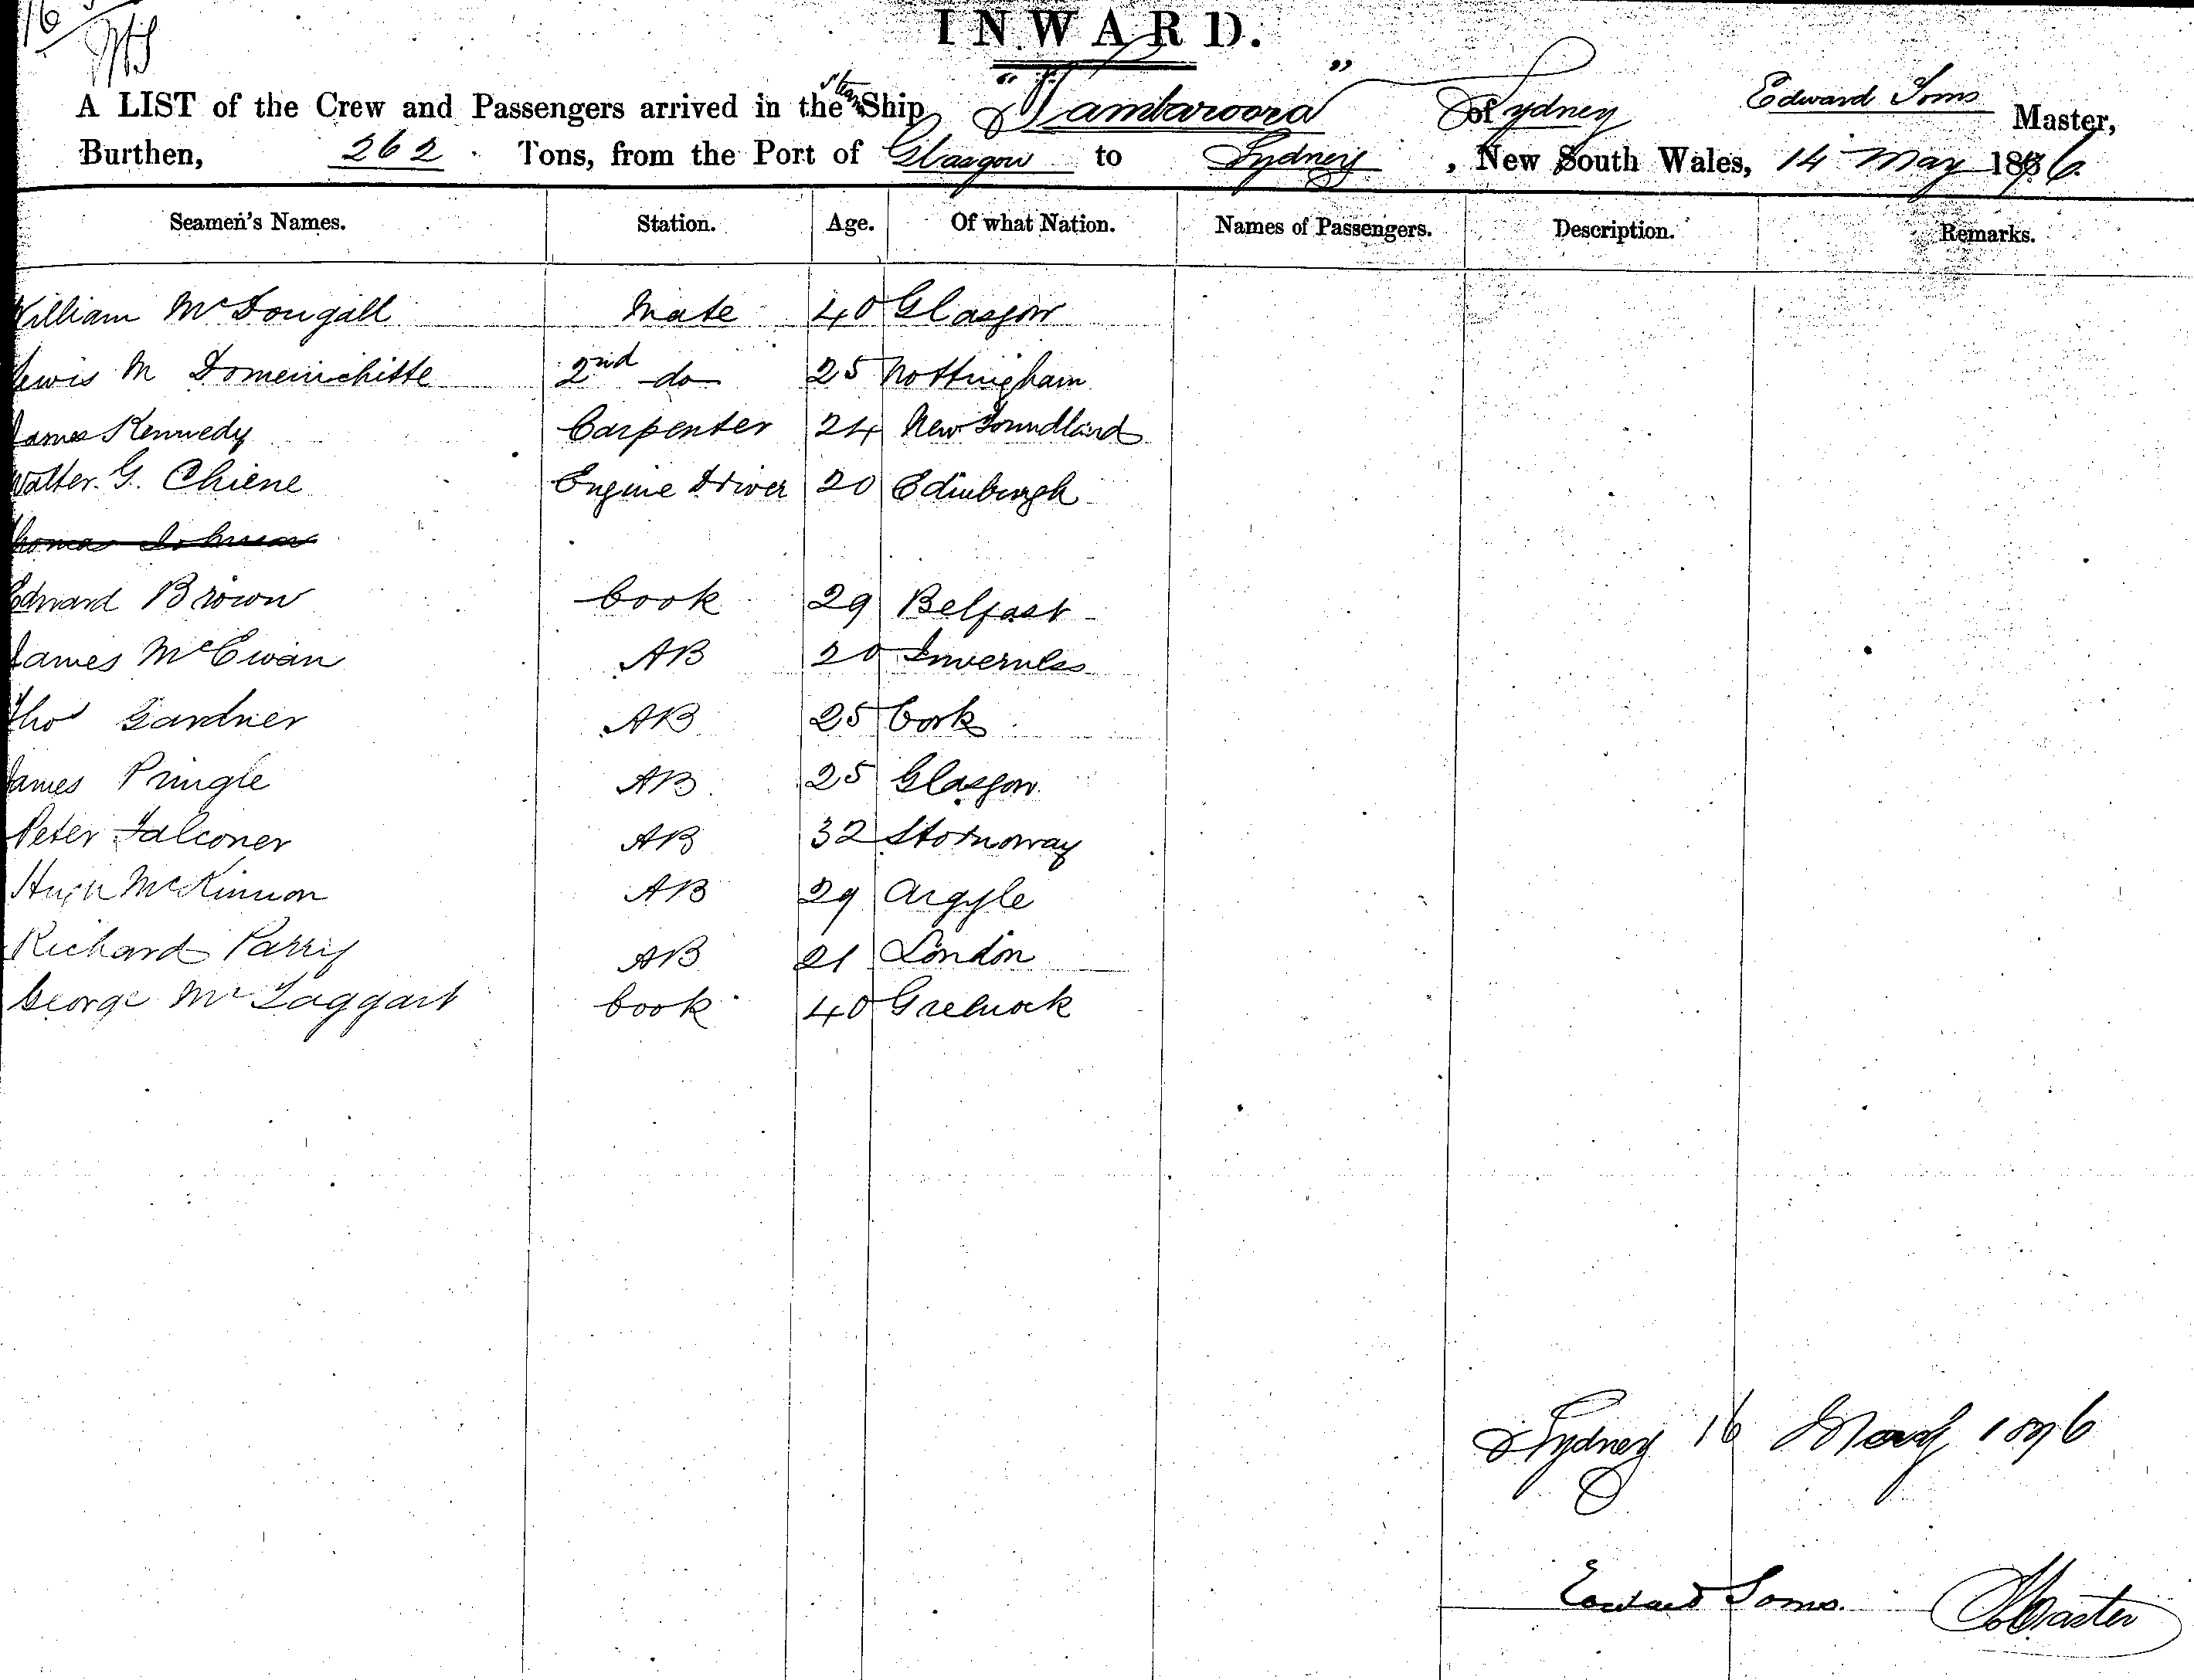 16
INWARD.
A LIST of the Crew and Passengers arrived in the Steam Ship "Tambaroora" of Sydney Edward Toms Master,
Burthen, 262 Tons, from the Port of Glasgow to Sydney, New South Wales, 14 May 1876.
Seamen's Names. Station. Age. Of what Nation. Names of Passengers. Description. Remarks.
William McDougall Mate 40 Glasgow
Lewis M 2nd do 25 Nottingham
James Kennedy Carpenter 24 Newfoundland
Walter G. Chiene Engine Driver 20 Edinburgh
Thomas Johnson
Edward Brown Cook 29 Belfast
James McEwan AB 20 Inverness
Tho Gardner AB 25 Cork
James Pringle AB 25 Glasgow
Peter Falconer AB 32 Stornoway
Hugh McKinnon AB 29 Argyle
Richard Parry AB 21 London
George McTaggart Cook 40 Greenock
Sydney 16 May 1876
Edward Toms. Master